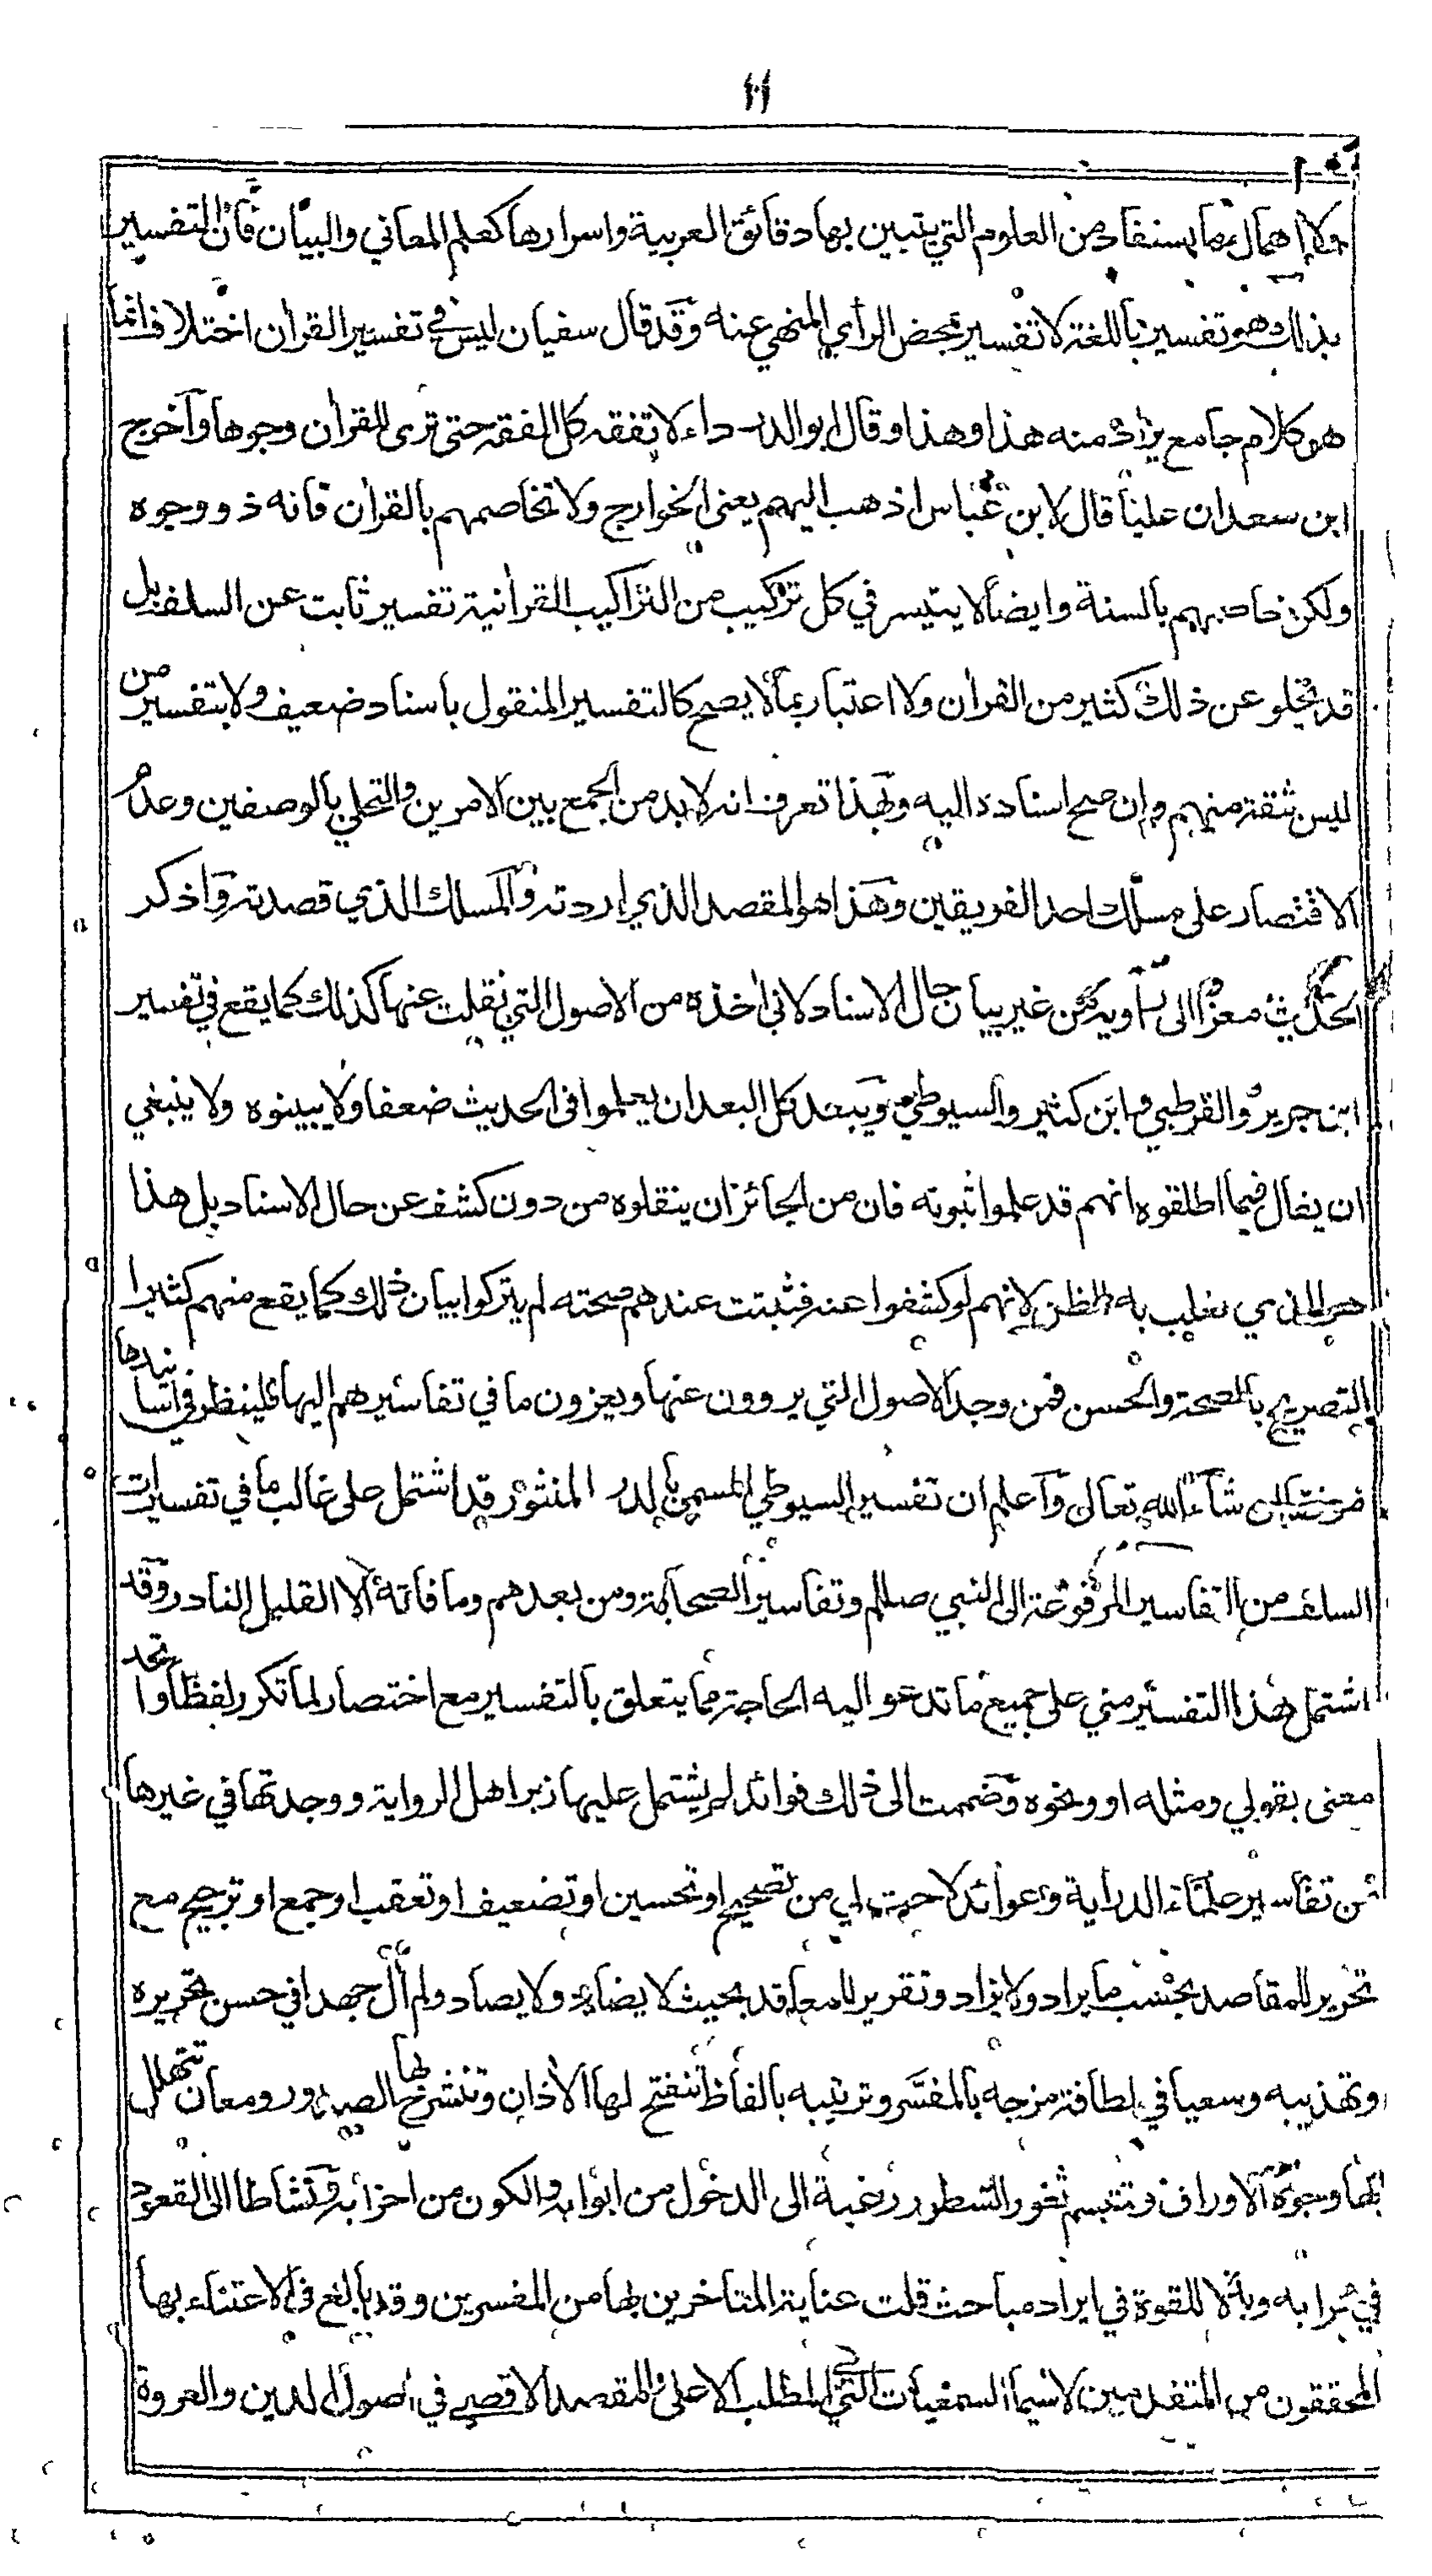 ١١
ولا اهمال ما يستفاد من العلوم التي يتبين بها دقائق العربية واسرارها كعلم المعاني والبيان فان التفسير
بذلك هو تفسير باللغة لا تفسير بمحض الرأي المنهي عنه وقد قال سفيان ليس في تفسير القران اختلاف انما
هو كلام جامع يراد منه هذا وهذا وقال ابو الدرداء لا تفقه كل الفقه حتى ترى للقران وجوها وآخرج
ابن سعد ان عليا قال لابن عباس اذهب اليهم يعني الخوارج ولا تخاصمهم بالقران فانه ذو وجوه
ولكن خاصمهم بالسنة وايضا لا يتيسر في كل تركيب من التراكيب القرانية تفسير ثابت عن السلف بل
قد يخلو عن ذلك كثير من القران ولا اعتبار بما لا يصح كالتفسير المنقول باسناد ضعيف ولا بتفسير من
ليس بثقة منهم وان صح اسناده اليه وبهذا تعرف انه لا بد من الجمع بين الامرين والتحلي بالوصفين وعدم
الاقتصار على مسلك احد الفريقين وهذا هو المقصد الذي اردته والمسلك الذي قصدته واذكر
الحديث معزوا الى راويه من غير بيان حال الاسناد لاني اخذه من الاصول التي نقلت عنها كذلك كما يقع في تفسير
ابن جرير والقرطبي وابن كثير والسيوطي ويبعد كل البعد ان يعلموا في الحديث ضعفا ولا يبينوه ولا ينبغي
ان يقال فيما اطلقوه انهم قد علموا ثبوته فان من الجائز ان ينقلوه من دون كشف عن حال الاسناد بل هذا
هو الذي يغلب به الظن لانهم لو كشفوا عنه فثبتت عندهم صحته لم يتركوا بيان ذلك كما يقع منهم كثيرا
التصريح بالصحة والحسن فمن وجد الاصول التي يروون عنها ويعزون ما في تفاسيرهم اليها فلينظر في اسانيدها
موفقا ان شاء الله تعالى وآعلم ان تفسير السيوطي المسمى بالدر المنثور قد اشتمل على غالب ما في تفسيرات
السلف من التفاسير المرفوعة الى النبي صللم وتفاسير الصحابة ومن بعدهم وما فاته الا القليل النادر وقد
اشتمل هذا التفسير مني على جميع ما تدعو اليه الحاجة مما يتعلق بالتفسير مع اختصار لما تكرر لفظا واتحد
معنى بقولي ومثله او ونحوه وضممت الى ذلك فوائد لم يشتمل عليها زبر اهل الرواية ووجدتها في غيرها
من تفاسير علماء الدراية وعوائد لاحت لي من تصحيح او تحسين او تضعيف او تعقب او جمع او ترجيح مع
تحرير للمقاصد بحسب ما يراد ولا يزاد وتقرير للمعاقد بحيث لا يضاد ولا يصاد ولم أأل جهدا في حسن تحريره
وتهذيبه وسعيا في لطافة مزجه بالمفسَّر وترتيبه بالفاظ تنفتح لها الاذان وتنشرح لها الصدور ومعان تتهلل
بها وجوه الاوراق وتتبسم ثغور السطور رغبة الى الدخول من ابوابه والكون من احزابه ونشاطا الى القعود
في محرابه وبذلا للقوة في ايراد مباحث قلت عناية المتاخرين بها من المفسرين وقد بالغ في الاعتناء بها
المحققون من المتقدمين لاسيما السمعيات التي هي المطلب الاعلى والمقصد الاقصى في اصول الدين والعروة